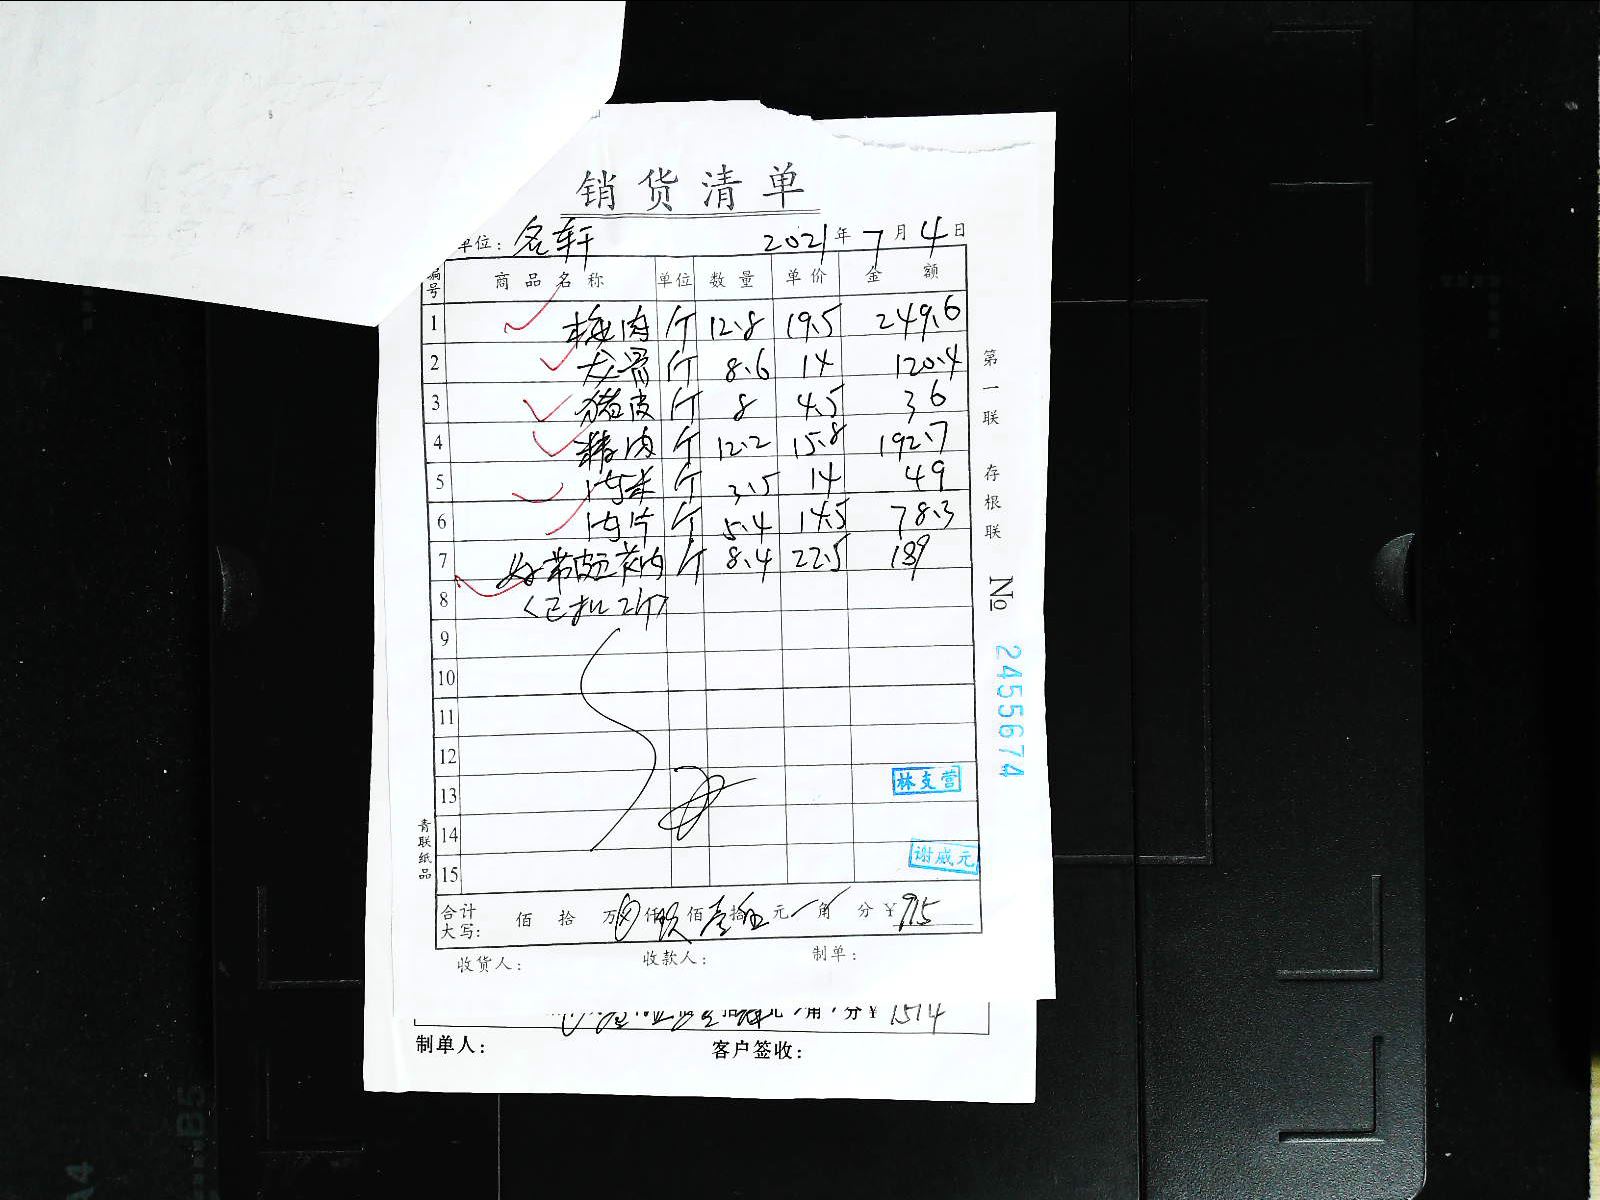 销货清单
单位：名轩 2021年7月4日
编号 商品名称 单位 数量 单价 金额
1 梅肉 斤 12.8 19.5 249.6
2 龙骨 斤 8.6 14 120.4
3 猪皮 斤 8 4.5 36
4 精肉 斤 12.2 15.8 192.7
5 肉米 斤 3.5 14 49
6 肉片 斤 5.4 14.5 78.3
7 好带皮五花肉 斤 8.4 22.5 189
8 〈已扣2斤〉
9
10
11
12
13 林支营
14
15 谢威元
合计大写： 佰 拾 万 仟 玖佰 壹拾 伍元 角 分 ¥ 915
收货人： 收款人： 制单：
第一联 存根联
№ 2455674
青联纸品
角 分 ¥ 1514
制单人： 客户签收：
A4
B5